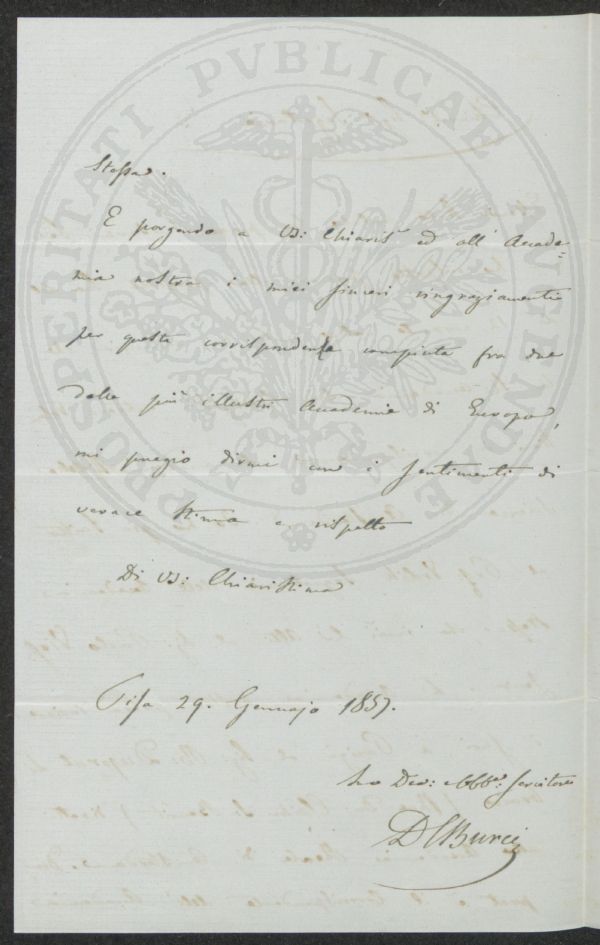 PROSPERITATI PVBLICAE AVGENDAE
Stessa.
E porgendo a VS: Chiaris.ª ed all' Accade=
mia nostra i miei sinceri ringraziamenti
per questa corrispondenza compiuta fra due
delle più illustri Accademie di Europa,
mi pregio dirmi con i sentimenti di
verace stima e rispetto
Di VS: Chiarissima
Pisa 29. Gennajo 1857.
Suo Dev: Obbb.º: Servitore
Burci